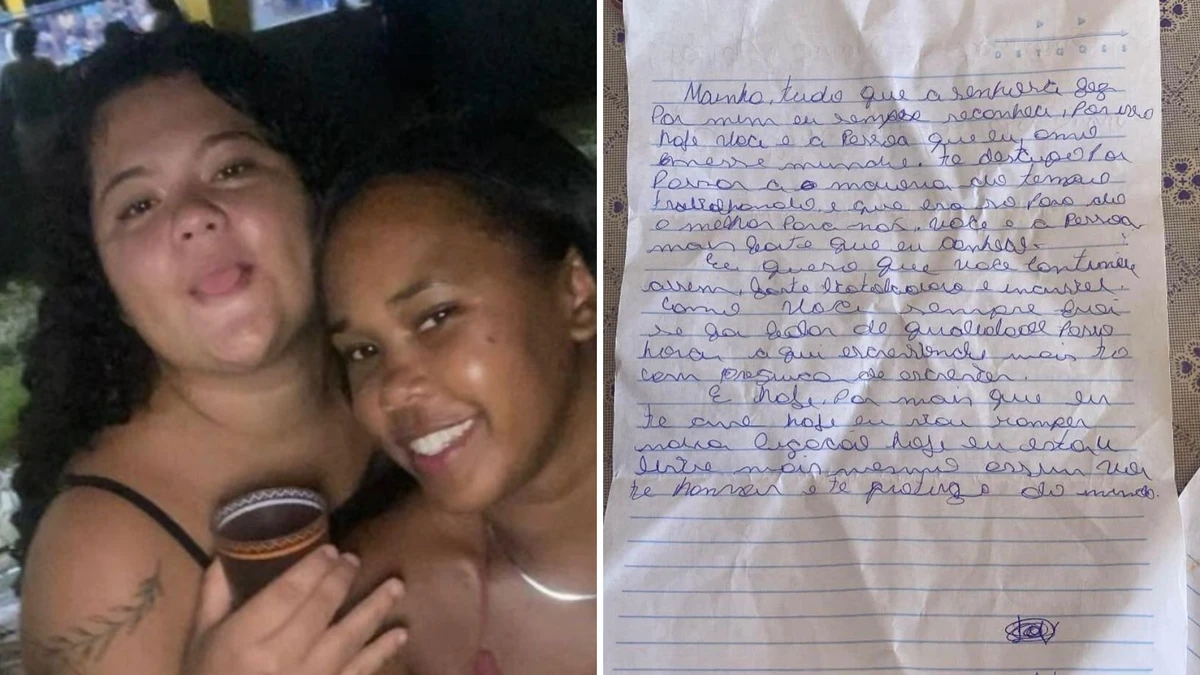 Mainha, tudo que a senhora fez
Por mim eu sempre reconheci, Por isso
hoje você e a Pessoa que eu amo
nesse mundo. te desculpo Por
Passar a maioria do tempo
trabalhando, e que era so Para da
o melhor Para nós. você e a Pessoa
mais forte que eu conheço.
Eu quero que você continue
assim, forte trabalhadora e incrivel.
como você sempre
falar de qualidade
horas aqui escrevendo mais to
com preguiça de escrever.
E hoje, Por mais que eu
te ame hoje eu vou romper
nossa ligação hoje eu estou
livre mais mesmo assim vou
te honrar e te proteger do mundo.